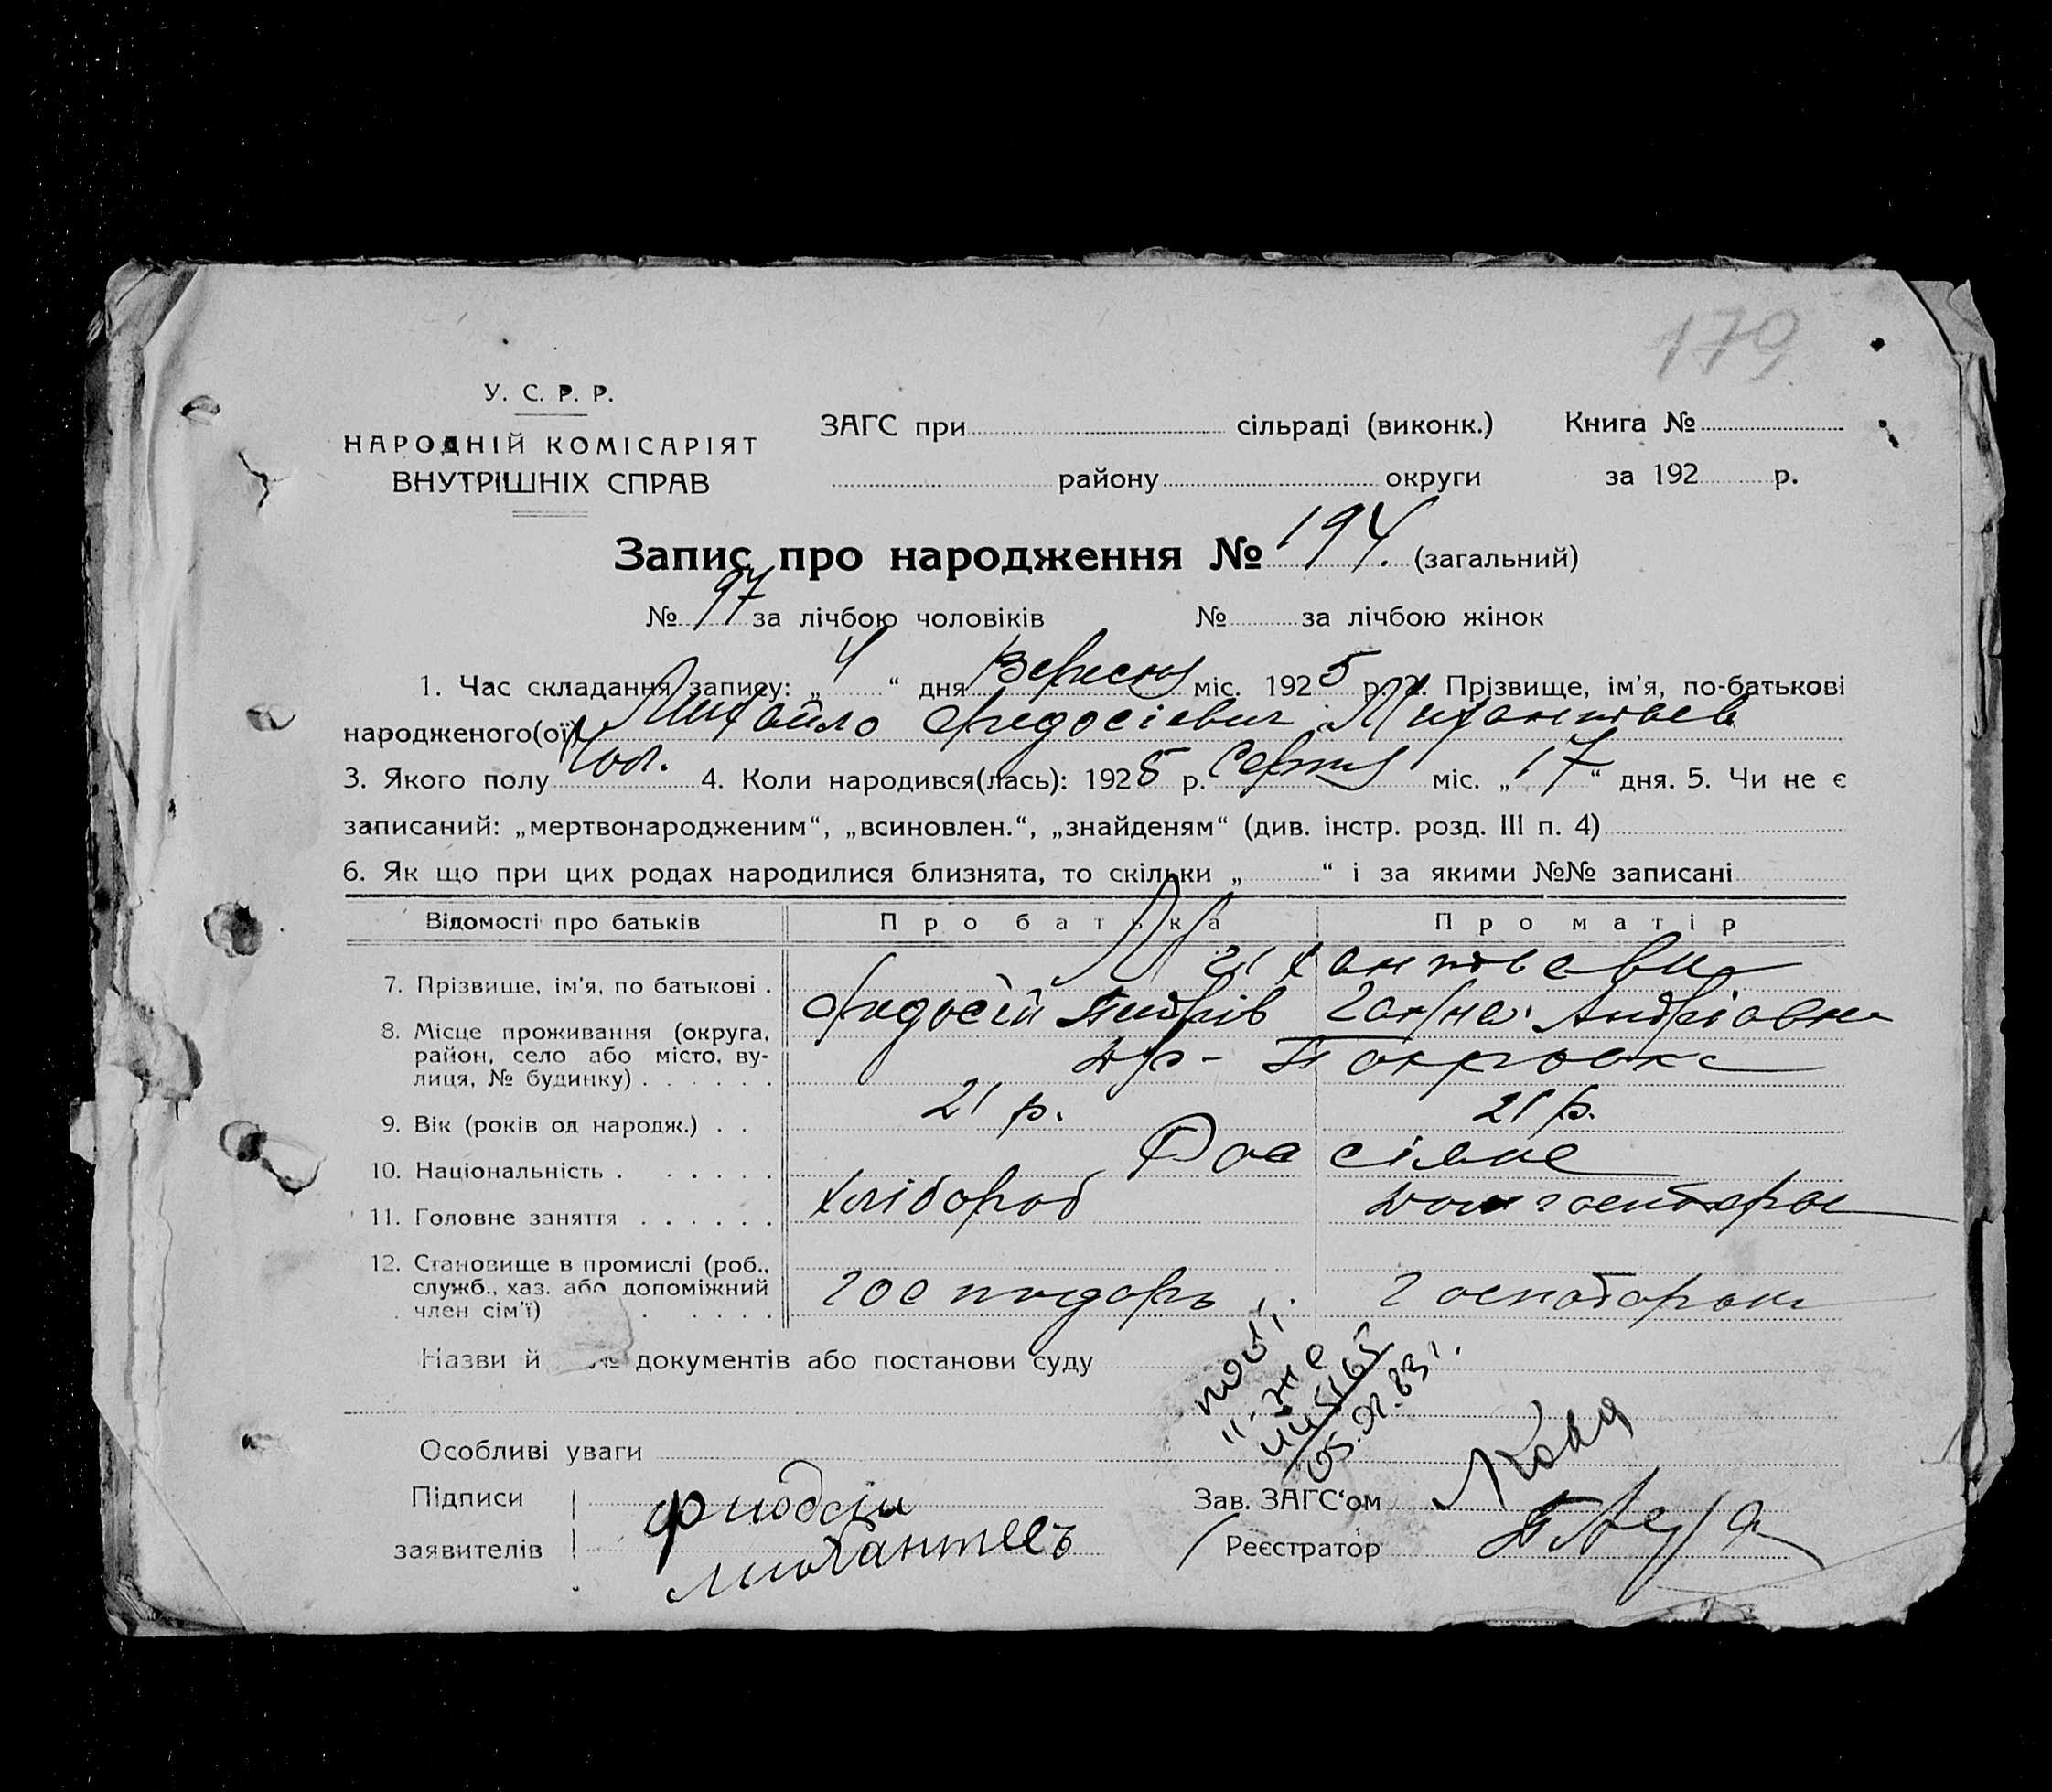 179
У. С. Р. Р.
НАРОДНІЙ КОМІСАРІЯТ
ВНУТРІШНІХ СПРАВ
ЗАГС при сільраді (виконк.) Книга №
району округи за 192 р.
Запис про народження № 194. (загальний)
№ 97 за лічбою чоловіків № за лічбою жінок
1. Час складання запису: „4“ дня Вересня міс. 1925 р. 2. Прізвище, ім'я, по-батькові
народженого(ої) Михайло Федосієвич
3. Якого полу Чол. 4. Коли народився(лась): 1925 р. Серпня міс. „17“ дня. 5. Чи не є
записаний: „мертвонародженим“, „всиновлен.“, „знайденям“ (див. інстр. розд. III п. 4)
6. Як що при цих родах народилися близнята, то скільки „ “ і за якими №№ записані
Відомості про батьків Про батька Про матір
7. Прізвище, ім'я, по батькові .
Федосій Ганна Андріавна
8. Місце проживання (округа,
район, село або місто, ву-
лиця, № будинку) . . . . . .
Покровка
9. Вік (років од народж.) . . 21 р. 21 р.
10. Національність . . . . . .
11. Головне заняття . . . . . . хлібороб
12. Становище в промислі (роб.,
служб., хаз. або допоміжний
член сім'ї) . . . . .
господарь
Назви й № документів або постанови суду
Особливі уваги
Підписи
заявителів
Зав. ЗАГС'ом
Реєстратор